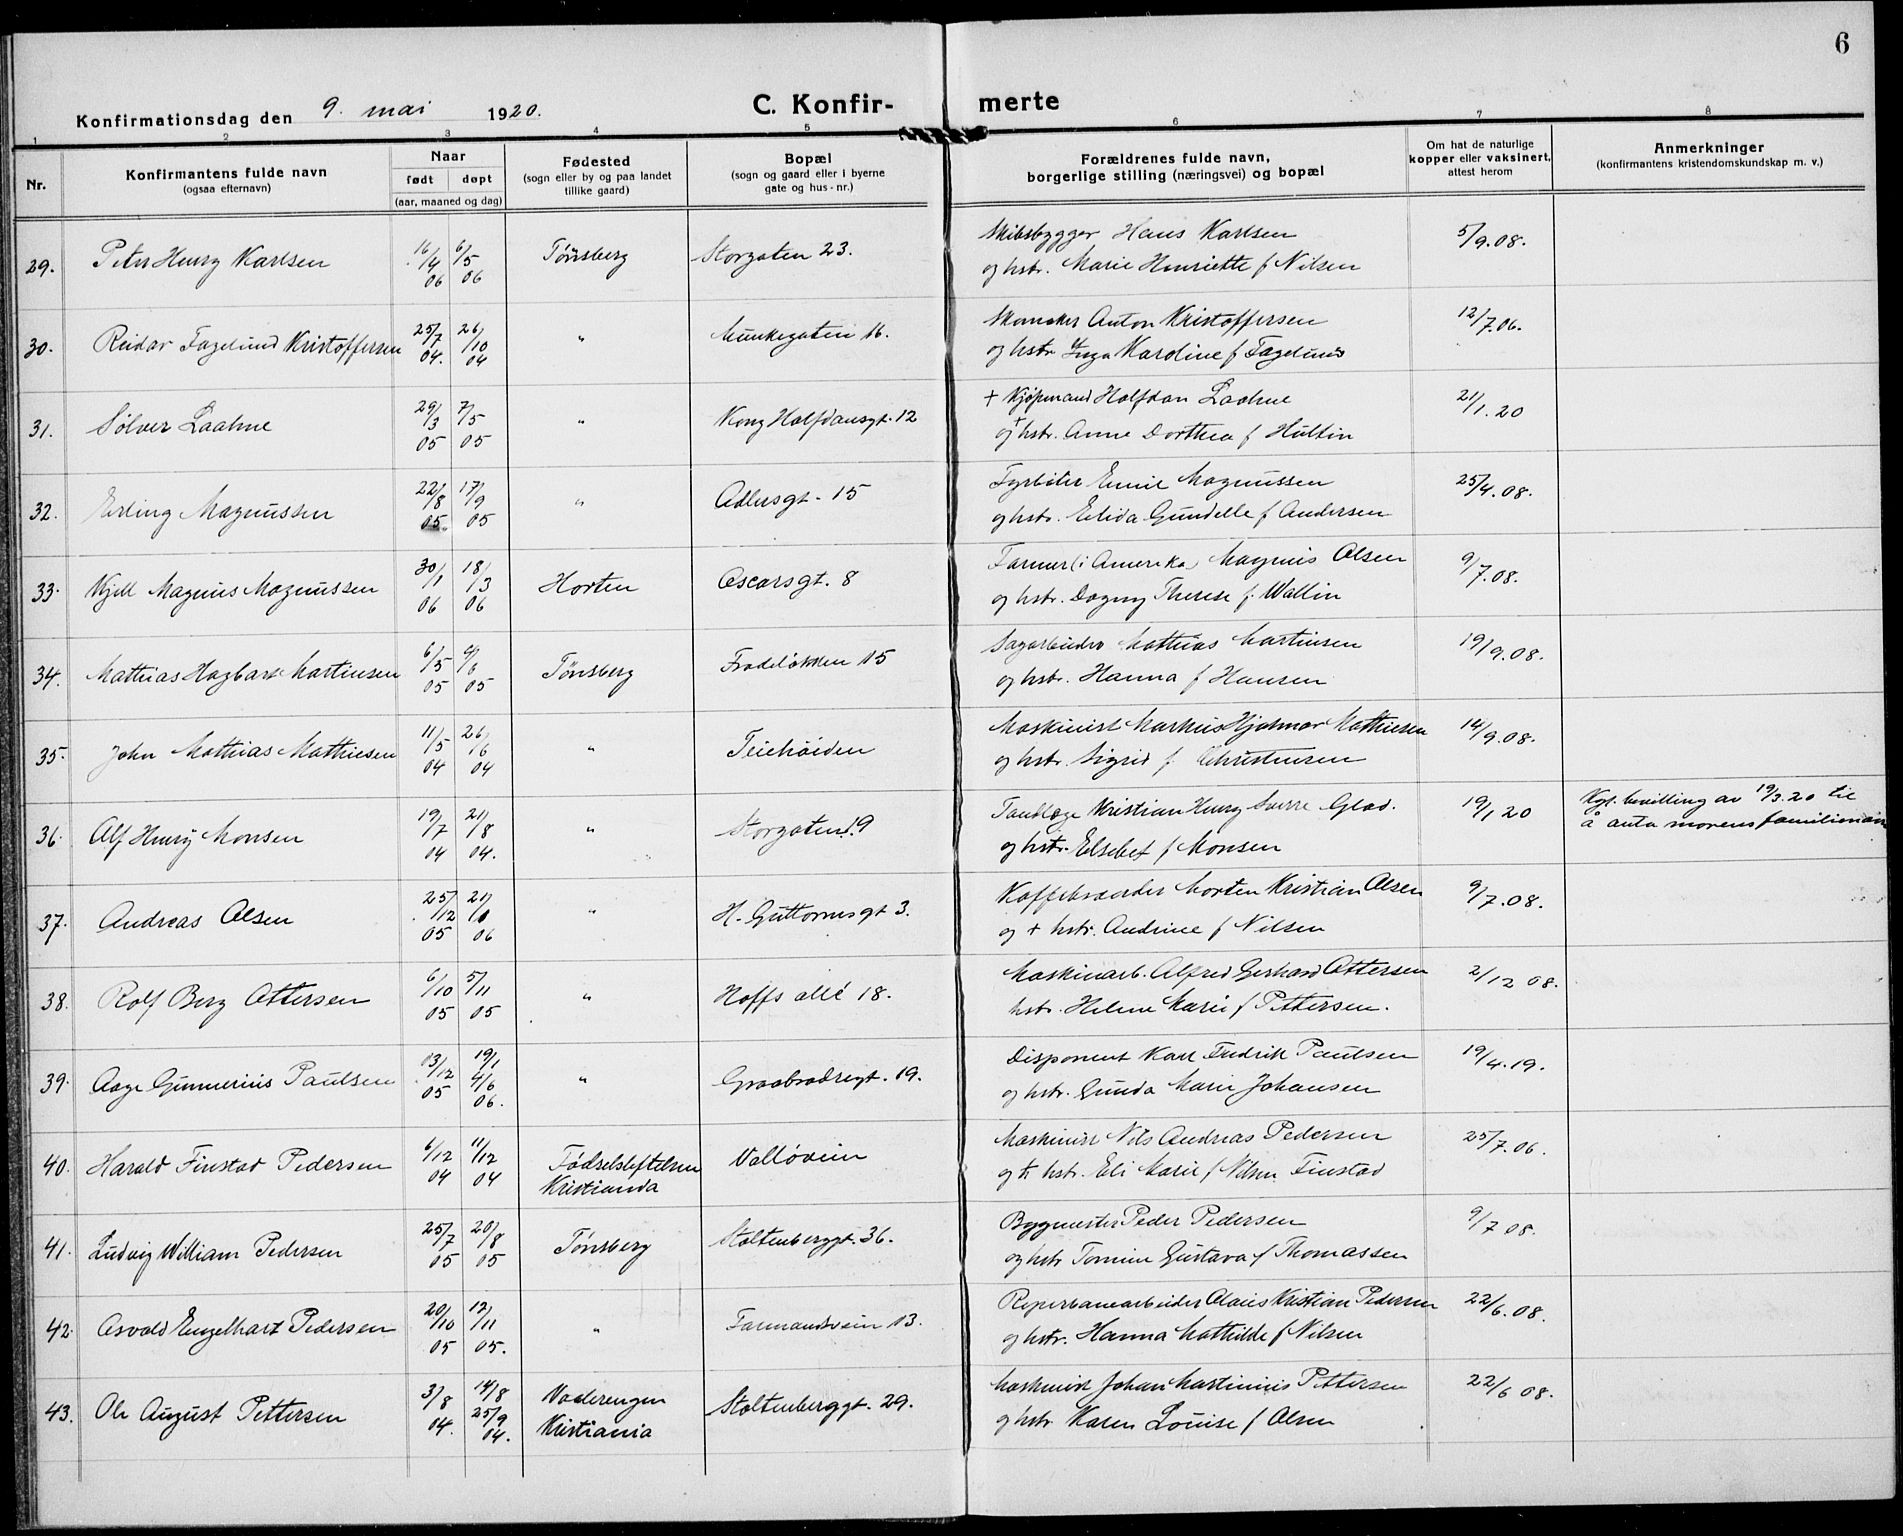 6
Konfirmationsdag den 9. mai 1920.
C. Konfir- merte
1 2 3 4 5 6 7 8
Nr.
Konfirmantens fulde navn
(ogsaa efternavn)
Naar
født døpt
(aar, maaned og dag)
Fødested
(sogn eller by og paa landet
tillike gaard)
Bopæl
(sogn og gaard eller i byerne
gate og hus-nr.)
Forældrenes fulde navn,
borgerlige stilling (næringsvei) og bopæl
Om hat de naturlige
kopper eller vaksinert,
attest herom
Anmerkninger
(konfirmantens kristendomskundskap m. v.)
29. Peter Henry Karlsen 16/4 06 6/5 06 Tønsberg Storgaten 23. Skibsbygger Hans Karlsen 5/9.08.
og hstr. Marie Henriette f Nilsen
30. Reidar Fagelund Kristoffersen 25/7 04. 26/10 04 " Munkegaten 16. Skomaker Anton Kristoffersen 12/7.06.
og hstr Inga Karoline f Fagelund
31. Sølver Laahne 29/3 05 7/5 05 " Kong Halfdansgt. 12 + Kjøpmand Halfdan Laahne 21/1.20
og + hstr. Anne Dorthea f Hultin
32. Erling Magnussen 22/8 05. 17/9 05 " Adlersgt. 15 Fyrbøter Emil Magnussen 25/4.08.
og hstr. Elida Gundelle f Andersen
33. Kjell Magnus Magnussen 30/1 06 18/3 06 Horten Oscarsgt. 8 Farmer (i Amerika) Magnus Olsen 9/7.08.
og hstr. Dagny Therese f. Wallin
34. Mathias Hagbart Martinsen 6/5 05 05 Tønsberg Fradeløkken 15 Sagarbeider Mathias Martinsen 19/9.08.
og hstr. Hanna f Hansen
35. John Mathias Mathiesen 11/5 04 26/6 04 " Teiehøiden Maskinist Markus Hjalmar Mathiesen 14/9.08.
og hstr. Sigrid f Christensen
36. Alf Henry Monsen 19/7 04 21/8 04. " Storgaten 19 Tandlæge Kristian Henry Sverre Glad. 19/1 20 Kgl. bevilling av 19/3.20 til
og hstr. Elsebet f Monsen å anta morens familienavn
37. Andreas Olsen 25/12 05 06 " H. Guttormsgt 3. Kaffebrænder Morten Kristian Olsen 9/7.08.
og + hstr. Andrine f Nilsen
38. Rolf Berg Ottersen 6/10 05 5/11 05 " Hoffs allé 18. Maskinarb. Alfred Gerhard Ottersen 2/12 08.
hstr. Helene Marie f Pettersen.
39. Aage Gunnerius Paulsen 13/12 05 19/1 4/6 06. " Graabrødregt. 19. Disponent Karl Fredrik Paulsen 19/4.19.
og hstr. Gunda Marie Johansen
40. Harald Finstad Pedersen 6/12 04 11/12 04 Fødselsstiftelsen Kristiania Valløveien Maskinist Nils Andreas Pedersen 25/7.06.
og hstr. Eli Marie f Nilsen Finstad
41. Ludvig William Pedersen 25/7 05 20/8 05 Tønsberg Stoltenberggt. 36. Bygmester Peder Pedersen 9/7 08.
og hstr Tomine Gustava f Thomassen
42. Osvald Engelhart Pedersen 20/10 05 12/11 05. " Farmandsveien 13. Reperbanearbeider Olaus Kristian Pedersen 22/6.08.
og hstr. Hanna Mathilde f Nilsen
43. Ole August Pettersen 3/8 04. 14/8 25/9 04. Vaalerengen Kristiania Stoltenberggt. 29. Maskinist Johan Martinius Pettersen 22/6 08.
og hstr Karen Louise f Olsen